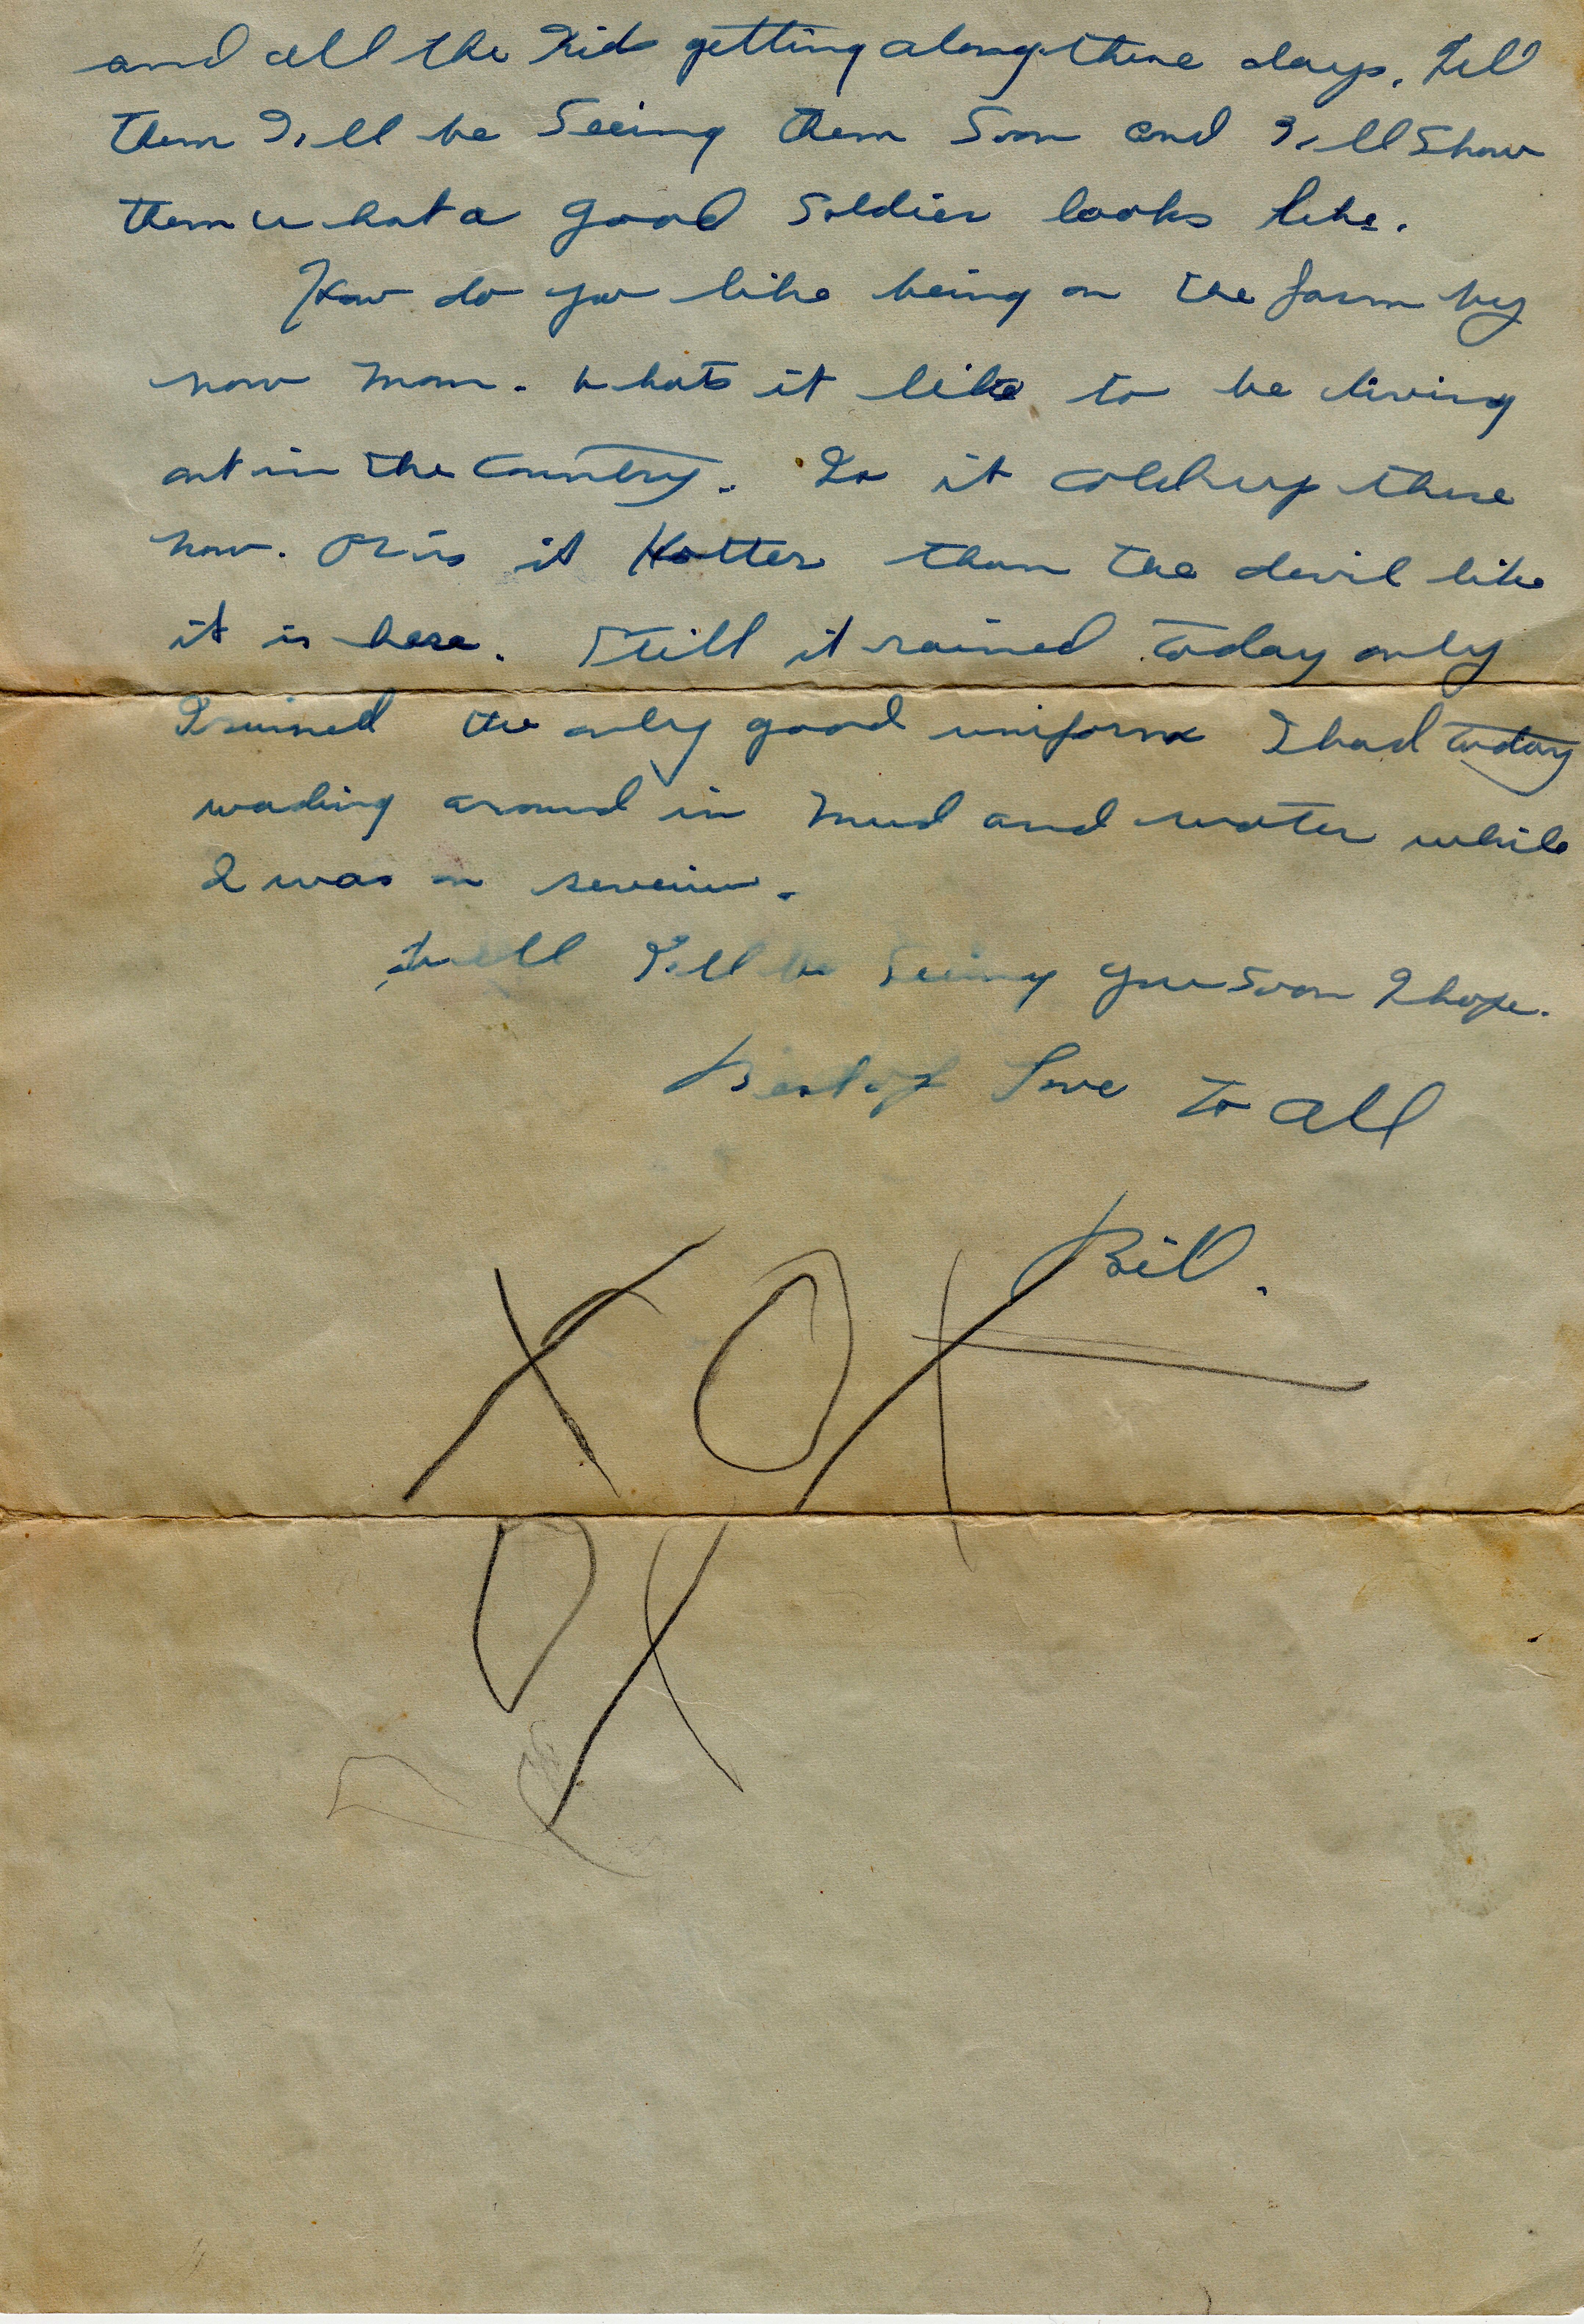 and all the Kids getting along these days. Tell
them I,ll be Seeing them Soon and I,ll Show
them what a good Soldier looks like.
How do you like being on the farm by
now mom. Whats it like to be living
out in the Country. Is it cold up there
now. Or is it Hotter than the devil like
it is here. Still it rained today only
I ruined the only good uniform I had today
wading around in mud and water while
I was on
Well I,ll be Seeing you Soon I hope.
Best of Love to all
Bill.
X O X
O X